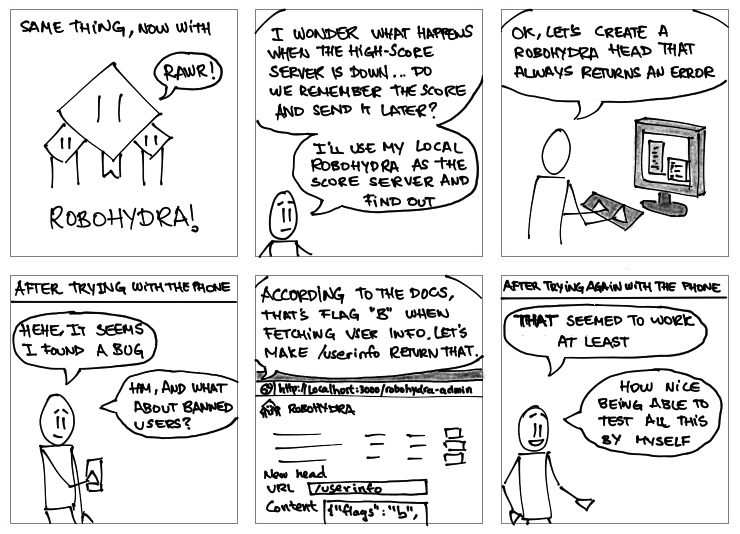 SAME THING, NOW WITH
RAWR!
ROBOHYDRA!
I WONDER WHAT HAPPENS
WHEN THE HIGH-SCORE
SERVER IS DOWN... DO
WE REMEMBER THE SCORE
AND SEND IT LATER?
I'LL USE MY LOCAL
ROBOHYDRA AS THE
SCORE SERVER AND
FIND OUT
OK, LET'S CREATE A
ROBOHYDRA HEAD THAT
ALWAYS RETURNS AN ERROR
AFTER TRYING WITH THE PHONE
HEHE, IT SEEMS
I FOUND A BUG
HM, AND WHAT
ABOUT BANNED
USERS?
ACCORDING TO THE DOCS,
THAT'S FLAG "B" WHEN
FETCHING USER INFO. LET'S
MAKE /userinfo RETURN THAT.
http://localhost:3000/robohydra-admin
ROBOHYDRA
New head
URL /userinfo
Content {"flags":"b",
AFTER TRYING AGAIN WITH THE PHONE
THAT SEEMED TO WORK
AT LEAST
HOW NICE
BEING ABLE TO
TEST ALL THIS
BY MYSELF